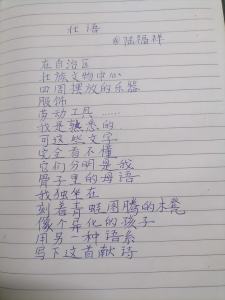 壮语
@陆福祥
在自治区
壮族文物中心
四周摆放的乐器
服饰
劳动工具……
我是熟悉的
可这些文字
完全看不懂
它们分明是我
骨子里的母语
我独坐在
刻着青蛙图腾的木凳
像个异化的孩子
用另一种语系
写下这首献诗